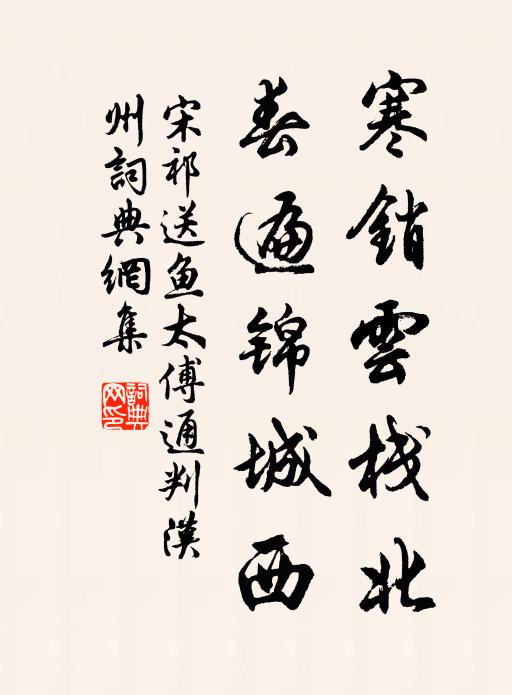 寒銷雲栈北
春遍錦城西
宋祁送鱼太傅通判漢
州詞典網集
詞典网印